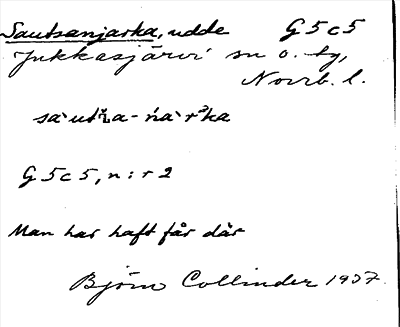 Sautsanjarka, udde G 5 c 5
Jukkasjärvi sn o. tg,
Norrb. l.
G 5 c 5, n:r 2
Man har haft får där
Björn Collinder 1937.